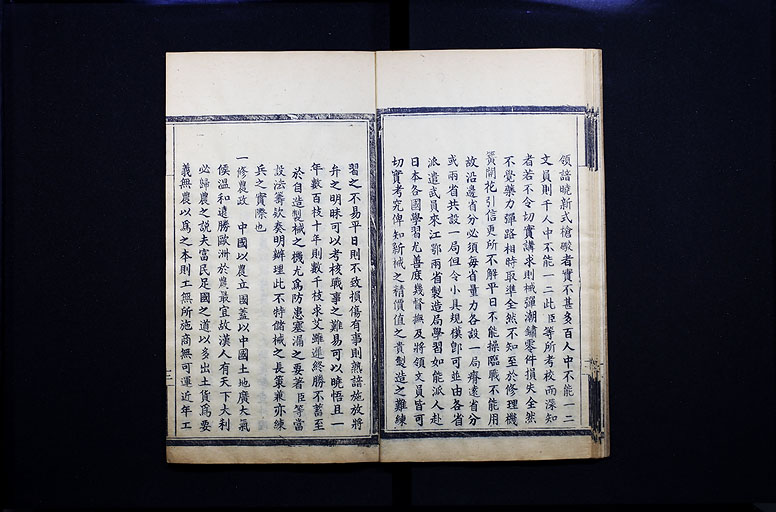 領諳曉新式槍礮者實不甚多百人中不能一二
文員則千人中不能一二此臣等所考校而深知
者若不令切實講求則械彈潮鏽零件損失全然
不覺藥力彈路相時取準全然不知至於修理機
簧開花引信更所不解平日不能操臨戰不能用
故沿邊省分必須每省量力各設一局瘠遠省分
或兩省共設一局但令小具規模卽可並由各省
派遣武員來江鄂兩省製造局學習如能派人赴
日本各國學習尤善庶幾督撫及將領文員皆可
切實考究俾知新械之精價值之貴製造之難練
習之不易平日則不致損傷有事則熟諳施放將
弁之明昧可以考核戰事之難易可以曉悟且一
年數百枝十年則數千枝求艾雖遲終勝不蓄至
於自造製械之機尤爲防患塞漏之要著臣等當
設法籌欵奏明辦理此不特儲械之長策兼亦練
兵之實際也
一修農政 中國以農立國蓋以中國土地廣大氣
候溫和遠勝歐洲於農最宜故漢人有天下大利
必歸農之說夫富民足國之道以多出土貨爲要
義無農以爲之本則工無所施商無可運近年工